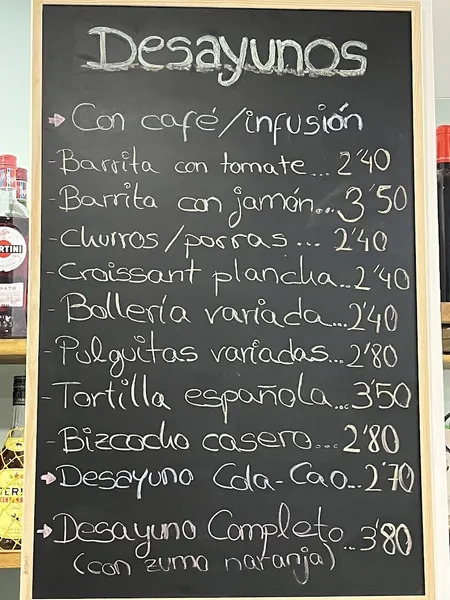 Desayunos
Con café/infusión
- Barrita con tomate... 2'40
- Barrita con jamón... 3'50
- Churros/porras... 2'40
- Croissant plancha... 2'40
- Bollería variada... 2'40
- Pulguitas variadas... 2'80
- Tortilla española... 3'50
- Bizcocho casero... 2'80
Desayuno Cola-Cao... 2'70
Desayuno Completo... 3'80
(con zumo naranja)
RTINI